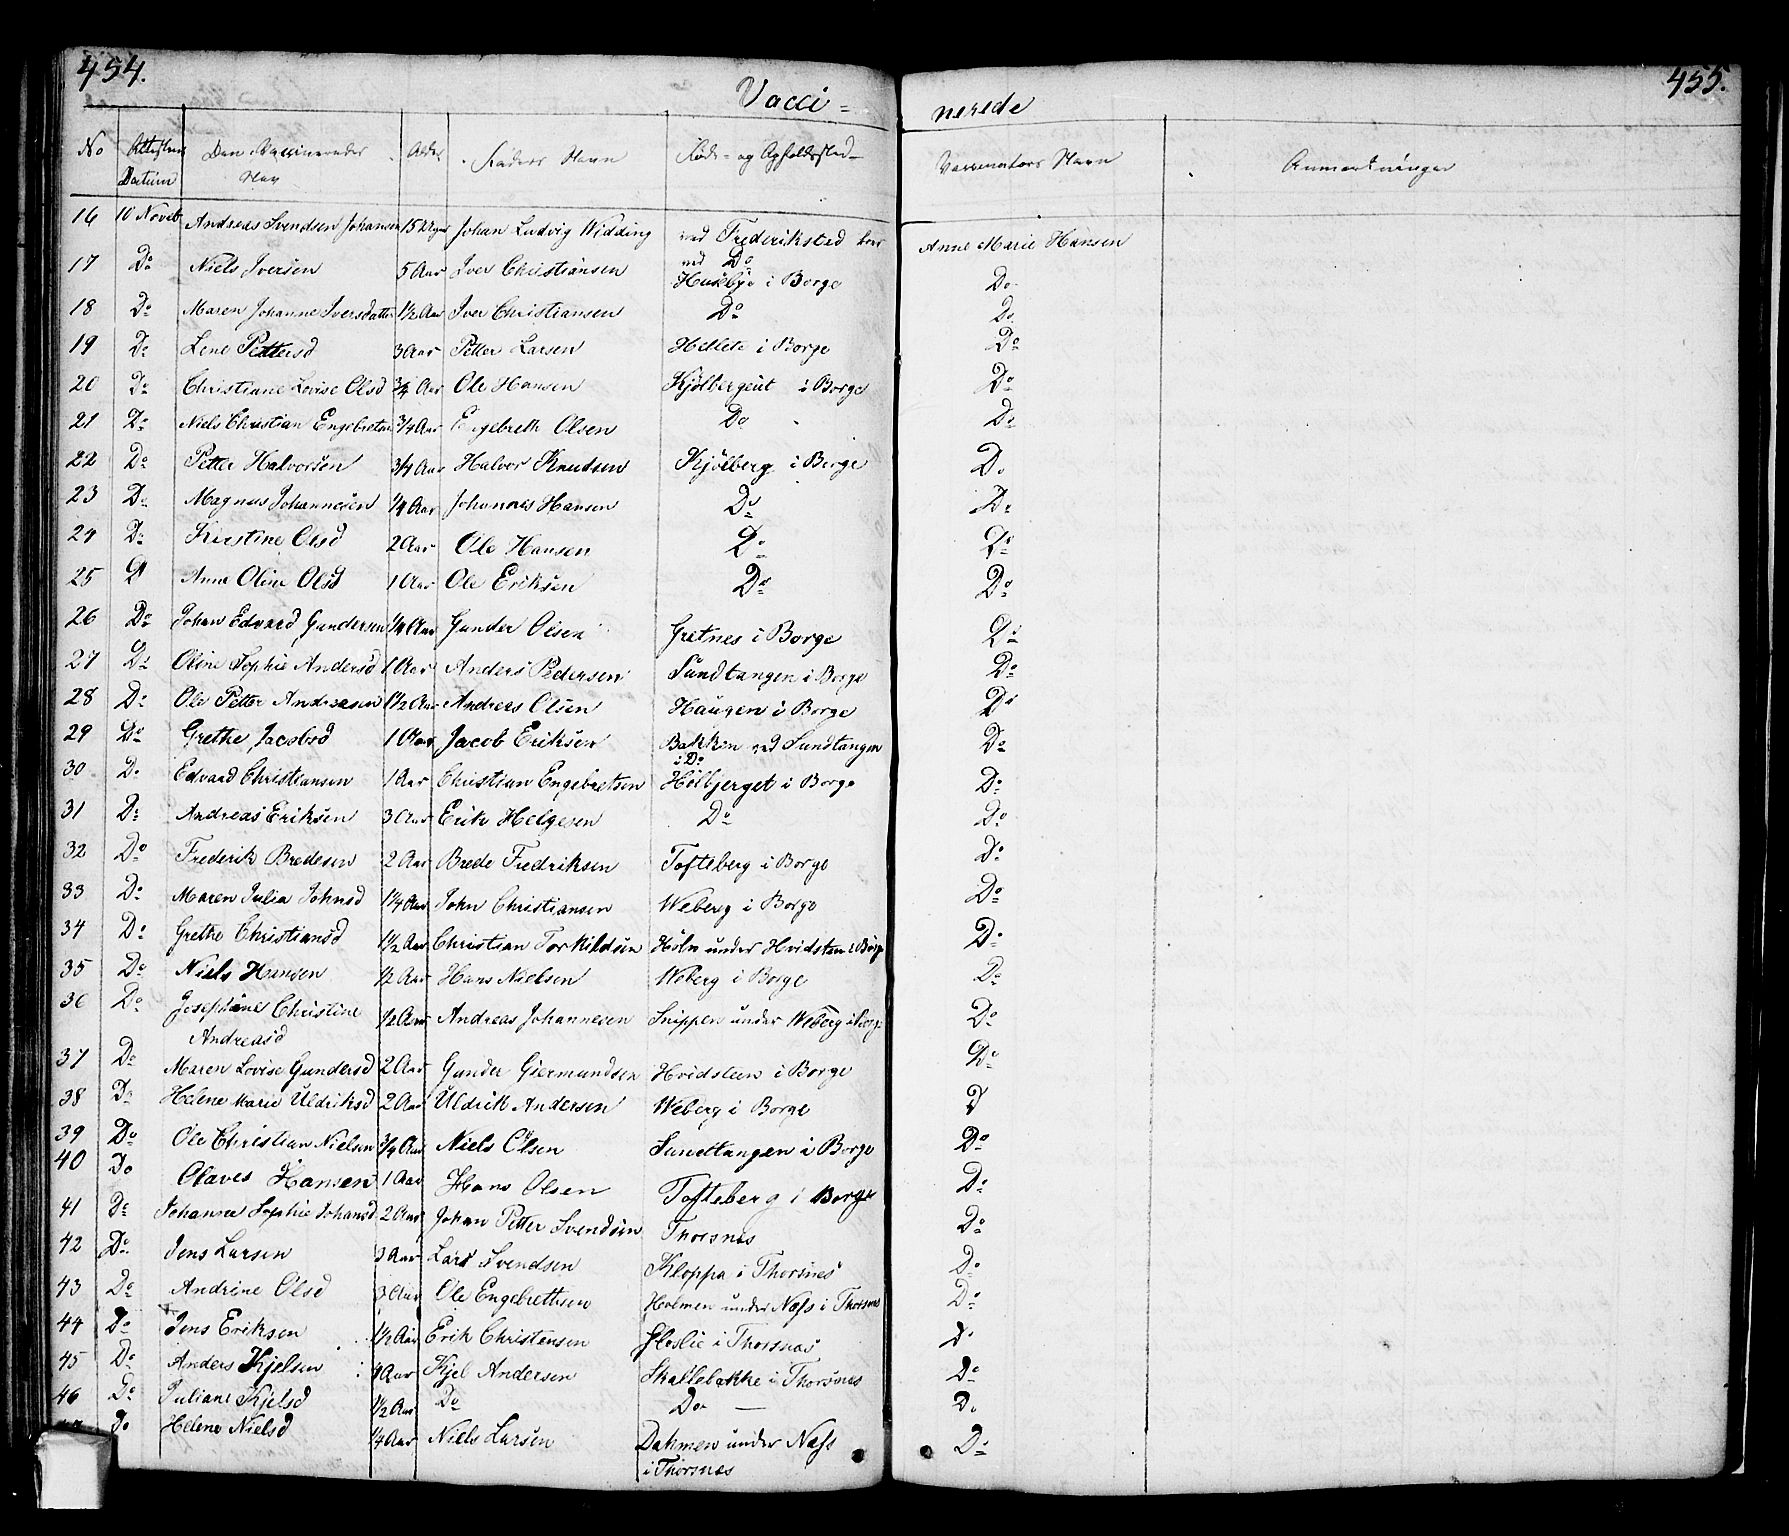 454.
455.
Vacci =
nerede
No Attestens Datum Den Vaccineredes Navn Alder Faders Navn Føde- og Opholdssted Vaccinators Navn Anmærkninger
16 10 Noveb Andreas Svendsen Johansen Johan Ludvig Widding ved Frederiksted Anne Marie Hansen
17 Do Niels Iversen 5 Aar Iver Christiansen ved Do Husebye i Borge Do
18 Do Maren Johanne Iversdatter 1½ Aar Iver Christiansen Do Do
19 Do Lene Pettersd 3 Aar Petter Larsen Hellete i Borge Do
20 Do Christiane Lovise Olsd ¾ Aar Ole Hansen Kjølbergeiet i Borge Do
21 Do Niels Christian Engebretsen ¾ Aar Engebreth Olsen Do Do
22 Do Petter Halvorsen ¾ Aar Halvor Knudsen Kjølberg i Borge Do
23 Do Magnus Johannesen ¼ Aar Johannes Hansen Do Do
24 Do Kirstine Olsd 2 Aar Ole Hansen Do Do
25 D Anne Oline Olsd 1 Aar Ole Eriksen Do Do
26 Do Johan Edvard Gundersen ¼ Aar Gunder Olsen Gretnes i Borge Do
27 Do Oline Sophie Andersd 1 Aar Anders Pedersen Sundtangen i Borge Do
28 Do Ole Petter Andreasen 1½ Aar Andreas Olsen Haugen i Borge Do
29 Do Grethe Jacobsd 1 Aar Jacob Eriksen Bakken ved Sundtangen i Do Do
30 Do Edvard Christiansen 1 Aar Christian Engebretsen Holbjerget i Borge Do
31 Do Andreas Eriksen 3 Aar Erik Helgesen Do Do
32 Do Frederik Bredesen 2 Aar Brede Fredriksen Tofteberg i Borge Do
33 Do Maren Julia Johnsd 1¼ Aar John Christiansen Weberg i Borge Do
34 Do Grethe Christiansd 1½ Aar Christian Torkildsen under Hvidsten i Borge Do
35 Do Niels Hansen ½ Aar Hans Nielsen Weberg i Borge Do
36 Do Josephine Christine Andreasd ½ Aar Andreas Johannesen Snippen under Weberg i Borge Do
37 Do Maren Lovise Gundersd 2 Aar Gunder Giermundsen Hvidsteen i Borge Do
38 Do Helene Marie Uldriksd 2 Aar Uldrik Andersen Weberg i Borge D
39 Do Ole Christian Nielsen ¾ Aar Niels Olsen Sundtangen i Borge Do
40 Do Olaves Hansen 1 Aar Hans Olsen Tofteberg i Borge Do
41 Do Johanne Sophie Johansd 2 Aar Johan Petter Svendsen Thorsnæs Do
42 Do Jens Larsen 3 Aar Lars Svendsen Kloppa i Thorsnes Do
43 Do Andrine Olsd 3 Aar Ole Engebrethsen Holmen under Næss i Thorsnæs Do
44 Do Jens Eriksen 1½ Aar Erik Christensen i Thorsnæs Do
45 Do Anders Kjelsen 4 Aar Kjel Andersen Skallebakke i Thorsnæs Do
46 Do Juliane Kjelsd ½ Aar Do Do Do
Do Helene Nielsd ¼ Aar Niels Larsen Dahmen under Næss i Thorsnæs Do